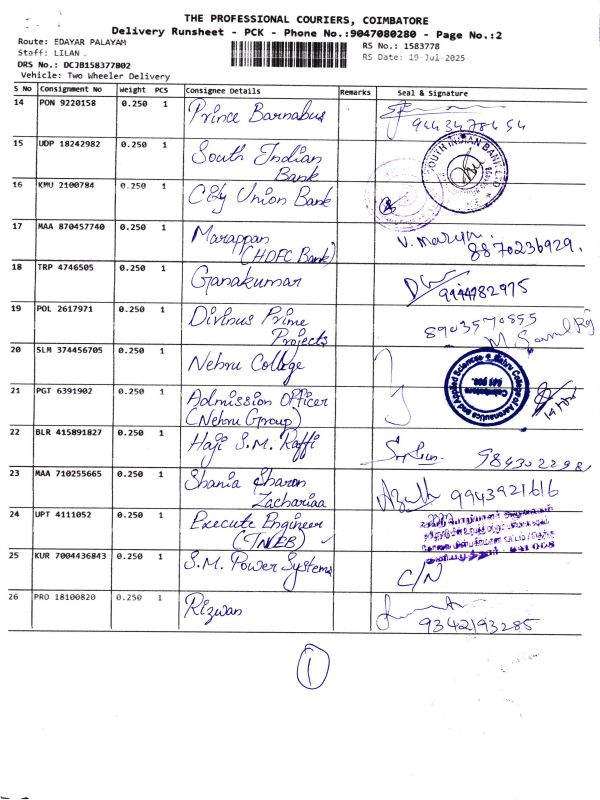 THE PROFESSIONAL COURIERS, COIMBATORE
Delivery Runsheet - PCK - Phone No.:9047080280 - Page No.:2
Route: EDAYAR PALAYAM
Staff: LILAN .
DRS No.: DCJB158377802
Vehicle: Two Wheeler Delivery
RS No.: 1583778
RS Date: 19-Jul-2025
S No Consignment No Weight PCS Consignee Details Remarks Seal & Signature
14 PON 9220158 0.250 1 Prince Barnabus
9443478454
15 UDP 18242982 0.250 1 South Indian
Bank
SOUTH INDIAN BANK LTD
16 KMU 2100784 0.250 1 City Union Bank
17 MAA 870457740 0.250 1 Marappan
(HDFC Bank)
8870236929.
18 TRP 4746505 0.250 1 Ganakumar
9944782975
19 POL 2617971 0.250 1 Divinus Prime
Projects
8903570855
20 SLM 374456705 0.250 1 Nehru College
Nehru College of Aeronautics and Applied Sciences
Coimbatore
21 PGT 6391902 0.250 1 Admission Officer
(Nehru Group)
22 BLR 415891827 0.250 1 Haji S.M. Raffi
984302298
23 MAA 710255665 0.250 1 Shania Sharon
Zachariaa
9943921616
24 UPT 4111052 0.250 1 Execute Engineer
(TNEB)
25 KUR 7004436843 0.250 1 S.M. Power Systems
C/N
26 PRO 18100820 0.250 1 Rizwan
9342193285
1